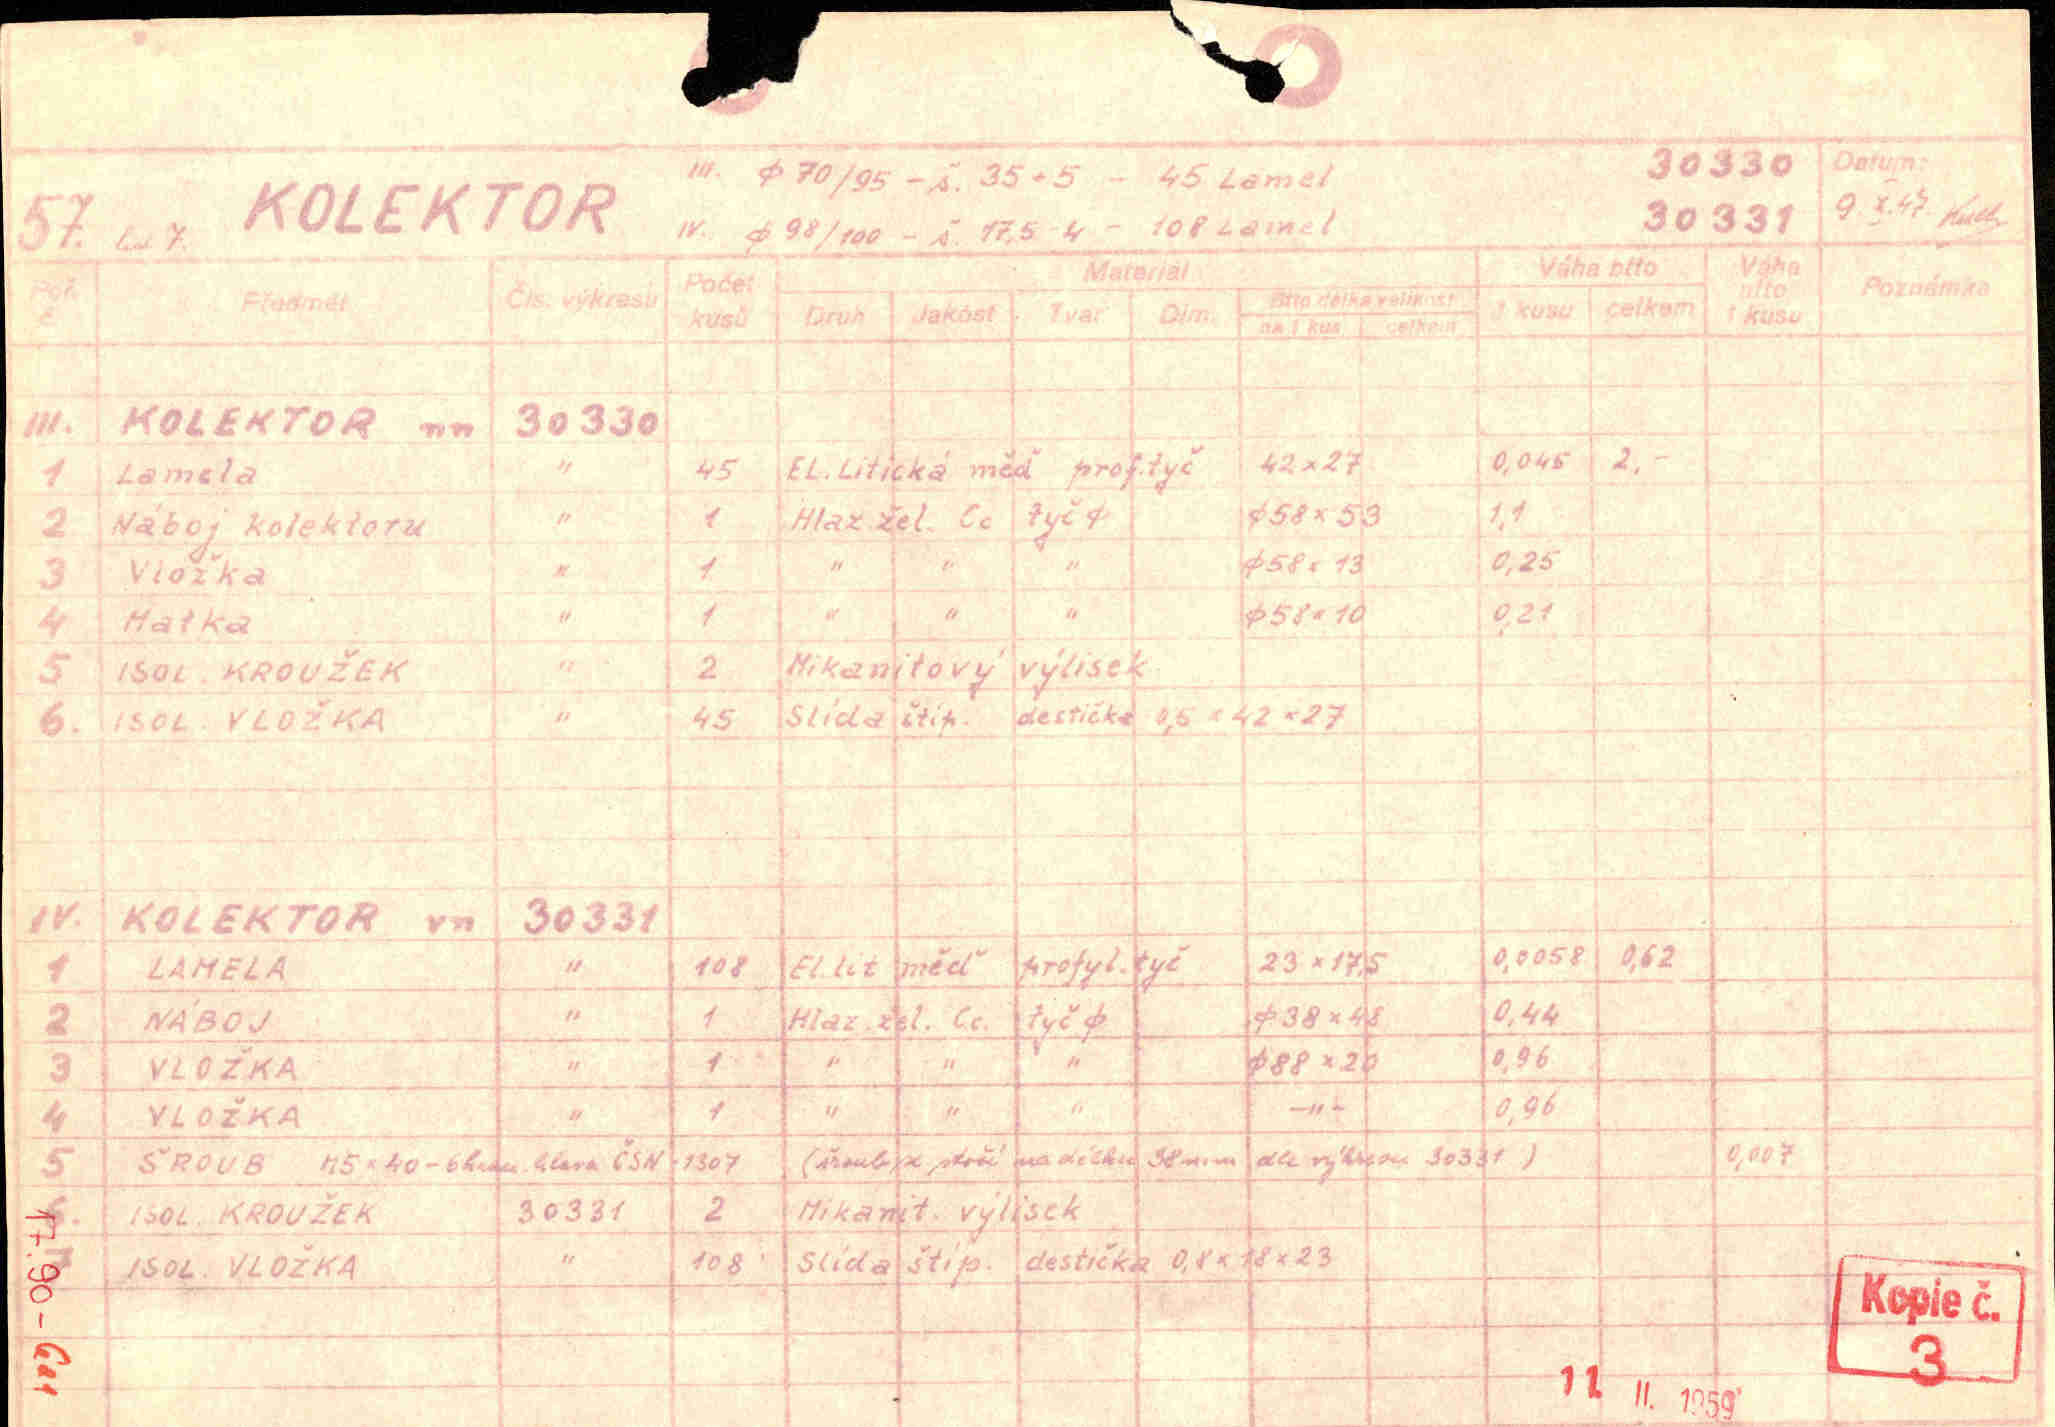 III. φ 70/95 - š. 35+5 - 45 Lamel 30330 Datum:
57. KOLEKTOR
IV. φ 98/100 - š. 17,5-4 - 108 Lamel 30331 9. X. 47.
Poř. č. Předmět Čís. výkresu Počet kusů Materiál Váha btto Váha ntto 1 kusu Poznámka
Druh Jakost Tvar Dim. Btto délka velikost 1 kusu celkem
na 1 kus celkem
III. KOLEKTOR nn 30330
1 Lamela " 45 EL. Litická měď prof. tyč 42×27 0,045 2,-
2 Náboj kolektoru " 1 Hlaz. žel. Cc tyč φ φ58×53 1,1
3 Vložka " 1 " " " φ58×13 0,25
4 Matka " 1 " " " φ58×10 0,21
5 ISOL. KROUŽEK " 2 Mikanitový výlisek
6. ISOL. VLOŽKA " 45 Slída štíp. destička 0,5×42×27
IV. KOLEKTOR vn 30331
1 LAMELA " 108 El. lit měď profyl. tyč 23×17,5 0,0058 0,62
2 NÁBOJ " 1 Hlaz. žel. Cc. tyč φ φ38×48 0,44
3 VLOŽKA " 1 " " " φ88×20 0,96
4 VLOŽKA " 1 " " " -"- 0,96
5 ŠROUB M5×40-6hran. hlava ČSN-1307 (šroub na délku 38mm dle výkresu 30331) 0,007
6. ISOL. KROUŽEK 30331 2 Mikanit. výlisek
ISOL. VLOŽKA " 108 Slída štíp. destička 0,8×18×23
17.90-
Kopie č.
3
11. II. 1959